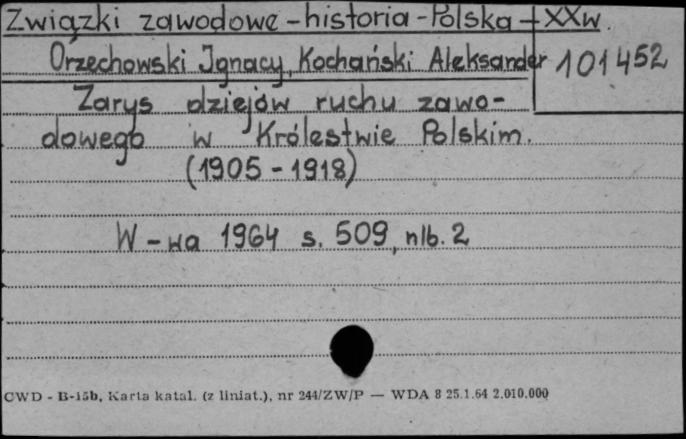 Związki zawodowe - historia - Polska - XXw.
Orzechowski Ignacy, Kochański Aleksander
101452
Zarys dziejów ruchu zawo-
dowego w Królestwie Polskim.
(1905 - 1918)
W-wa 1964 s. 509, nlb. 2
CWD - B-15b, Karta katal. (z liniat.), nr 244/ZW/P — WDA 8 25.1.64 2.010.000